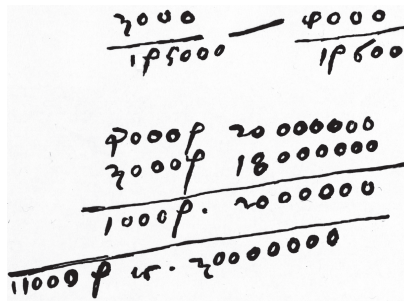 3000 — 4000
1p5000 1p600
4000p 20 000000
3000p 18 000000
1000p. 2000000
11000 p is. 30000000